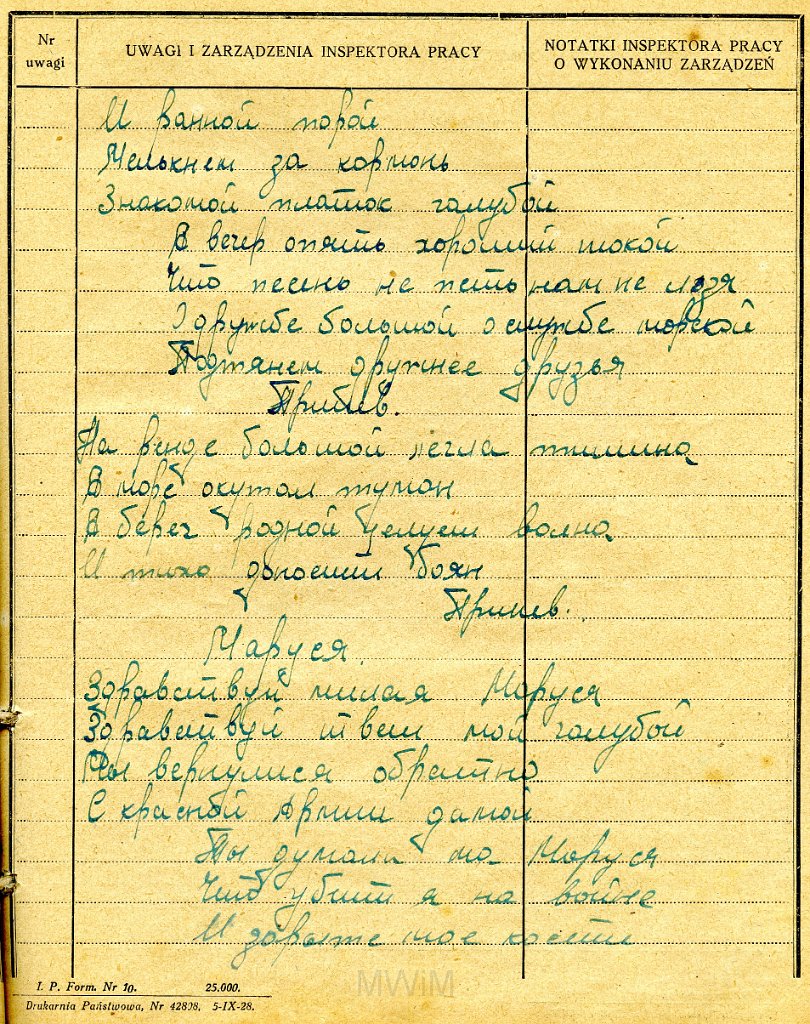 Nr uwagi
UWAGI I ZARZĄDZENIA INSPEKTORA PRACY
NOTATKI INSPEKTORA PRACY O WYKONANIU ZARZĄDZEŃ
И ранной порой
Мелькнем за кормонь
Знакомой платок галубой
А вечер опять хороший такой
Что песень не петь нам не лзя
О дружбе большой о службе морской
Подтянем дружнее друзья
Припев.
Наренде большой легла тишина
А море окутал туман
А берег родной целует волна
И тихо доносит боян
Припев.
Маруся.
Здравствуй милая Маруся
Здравствуй твет мой галубой
Мы вернулися обратно
С красной Армии дамой
Ты думала ма Маруся
Что убит я на войне
И зарыте мое кости
I. P. Form. Nr 10. 25.000.
Drukarnia Państwowa, Nr 42808. 5-IX-28.
MWiM